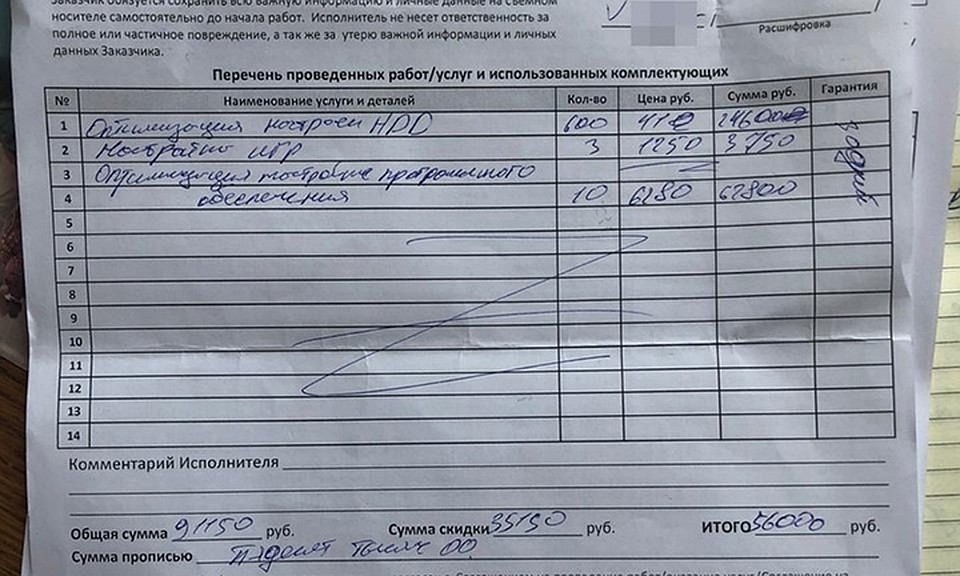 Заказчик обязуется сохранить всю важную информацию и личные данные на съемном
носителе самостоятельно до начала работ. Исполнитель не несет ответственность за
полное или частичное повреждение, а так же за утерю важной информации и личных
данных Заказчика.
Расшифровка
Перечень проведенных работ/услуг и использованных комплектующих
№ Наименование услуги и деталей Кол-во Цена руб. Сумма руб. Гарантия
1 Оптимизация настроек HDD 600 41 24600
2 Настройка игр 3 1250 3750
3 Оптимизация настройка программного
4 обеспечения 10 6280 62800
5
6
7
8
9
10
11
12
13
14
Комментарий Исполнителя
Общая сумма 91150 руб. Сумма скидки 35150 руб. ИТОГО 56000 руб.
Сумма прописью тысяч 00